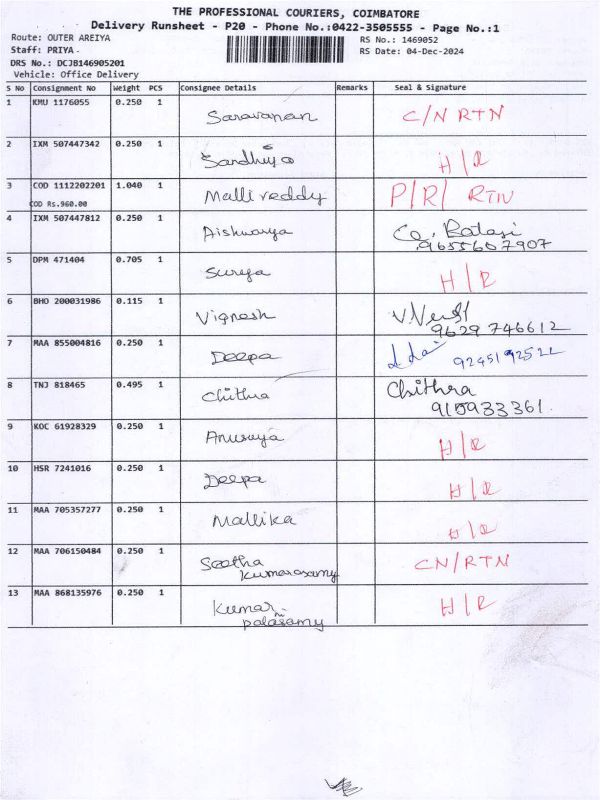 THE PROFESSIONAL COURIERS, COIMBATORE
Delivery Runsheet - P20 - Phone No.:0422-3505555 - Page No.:1
Route: OUTER AREIYA
RS No.: 1469052
Staff: PRIYA
RS Date: 04-Dec-2024
DRS No.: DCJB146905201
Vehicle: Office Delivery
S No Consignment No Weight PCS Consignee Details Remarks Seal & Signature
1 KMU 1176055 0.250 1 Saravanan C/N RTN
2 IXM 507447342 0.250 1 Sandhiya H/R
3 COD 1112202201 1.040 1 Malli reddy P/R/ RTN
COD Rs.960.00
4 IXM 507447812 0.250 1 Aishwarya Co. Balaji
9655607907
5 DPM 471404 0.705 1 Surya H/R
6 BHO 200031986 0.115 1 Vignesh
9629 746612
7 MAA 855004816 0.250 1 Deepa
8 TNJ 818465 0.495 1 Chithra Chithra
915933361
9 KOC 61928329 0.250 1 Anusuya H/R
10 HSR 7241016 0.250 1 Deepa H/R
11 MAA 705357277 0.250 1 Mallika H/R
12 MAA 706150484 0.250 1 Seetha CN/RTN
kumarasamy
13 MAA 868135976 0.250 1 Kumar H/R
palasamy